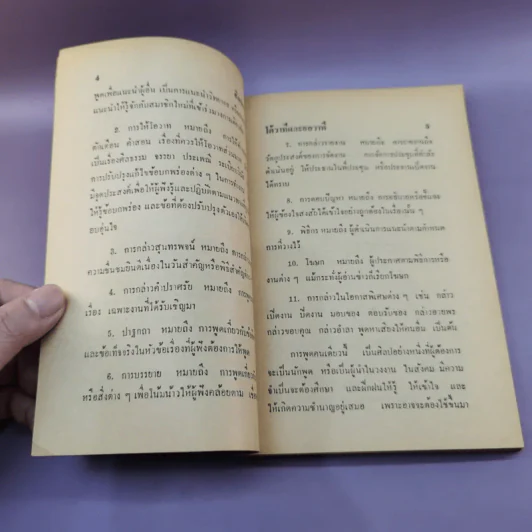 4
พูดเพื่อแนะนำผู้อื่น เป็นการแนะนำวิทยากร
แนะนำให้รู้จักกับสมาชิกใหม่ที่เข้าร่วม
2. การให้โอวาท หมายถึง การให้
ตักเตือน คำสอน เรื่องที่ควรให้โอวาท
เป็นเรื่องศีลธรรม จรรยา ประเพณี
การปรับปรุงแก้ไขข้อบกพร่องต่าง ๆ ในการ
มีจุดประสงค์เพื่อให้ผู้ฟังรู้และปฏิบัติตาม
ให้รู้ข้อบกพร่อง และข้อที่ต้องปรับปรุงตัวเอง
อบอุ่นใจ
3. การกล่าวสุนทรพจน์ หมายถึง การกล่าว
ความชื่นชมยินดีเนื่องในวันสำคัญหรือพิธีสำคัญ
4. การกล่าวคำปราศรัย หมายถึง
เรื่อง เฉพาะงานที่ได้รับเชิญมา
5. ปาฐกถา หมายถึง การพูดเกี่ยวกับ
และข้อเท็จจริงในหัวข้อเรื่องที่ผู้ฟังต้องการให้พูด
6. การบรรยาย หมายถึง การพูดเกี่ยว
หรือสิ่งต่าง ๆ เพื่อโน้มน้าวให้ผู้ฟังคล้อยตาม
โต้วาทีและยอวาที 5
7. การกล่าวรายงาน หมายถึง การกล่าวถึง
วัตถุประสงค์ของการจัดงาน
ดำเนินอยู่ ให้ประธานในที่ประชุม หรือประธานเปิดงาน
ได้ทราบ
8. การตอบปัญหา หมายถึง การอธิบายหรือชี้แจง
ให้ผู้ข้องใจสงสัยได้เข้าใจอย่างถูกต้องในเรื่องนั้น ๆ
9. พิธีกร หมายถึง ผู้ดำเนินการแนะนำตามกำหนด
การที่วางไว้
10. โฆษก หมายถึง ผู้ประกาศตามพิธีการหรือ
งานต่าง ๆ แม้กระทั่งผู้อ่านข่าวก็เรียกโฆษก
11. การกล่าวในโอกาสพิเศษต่าง ๆ เช่น กล่าว
เปิดงาน ปิดงาน มอบของ ตอบรับของ กล่าวอวยพร
กล่าวขอบคุณ กล่าวอำลา พูดหาเสียงให้คนอื่น เป็นต้น
การพูดคนเดียวนี้ เป็นศิลปอย่างหนึ่งที่ผู้ต้องการ
จะเป็นนักพูด หรือเป็นผู้นำในวงงาน ในสังคม มีความ
จำเป็นจะต้องศึกษา และฝึกฝนให้รู้ ให้เข้าใจ และ
ให้เกิดความชำนาญอยู่เสมอ เพราะอาจจะต้องใช้ขึ้นมา